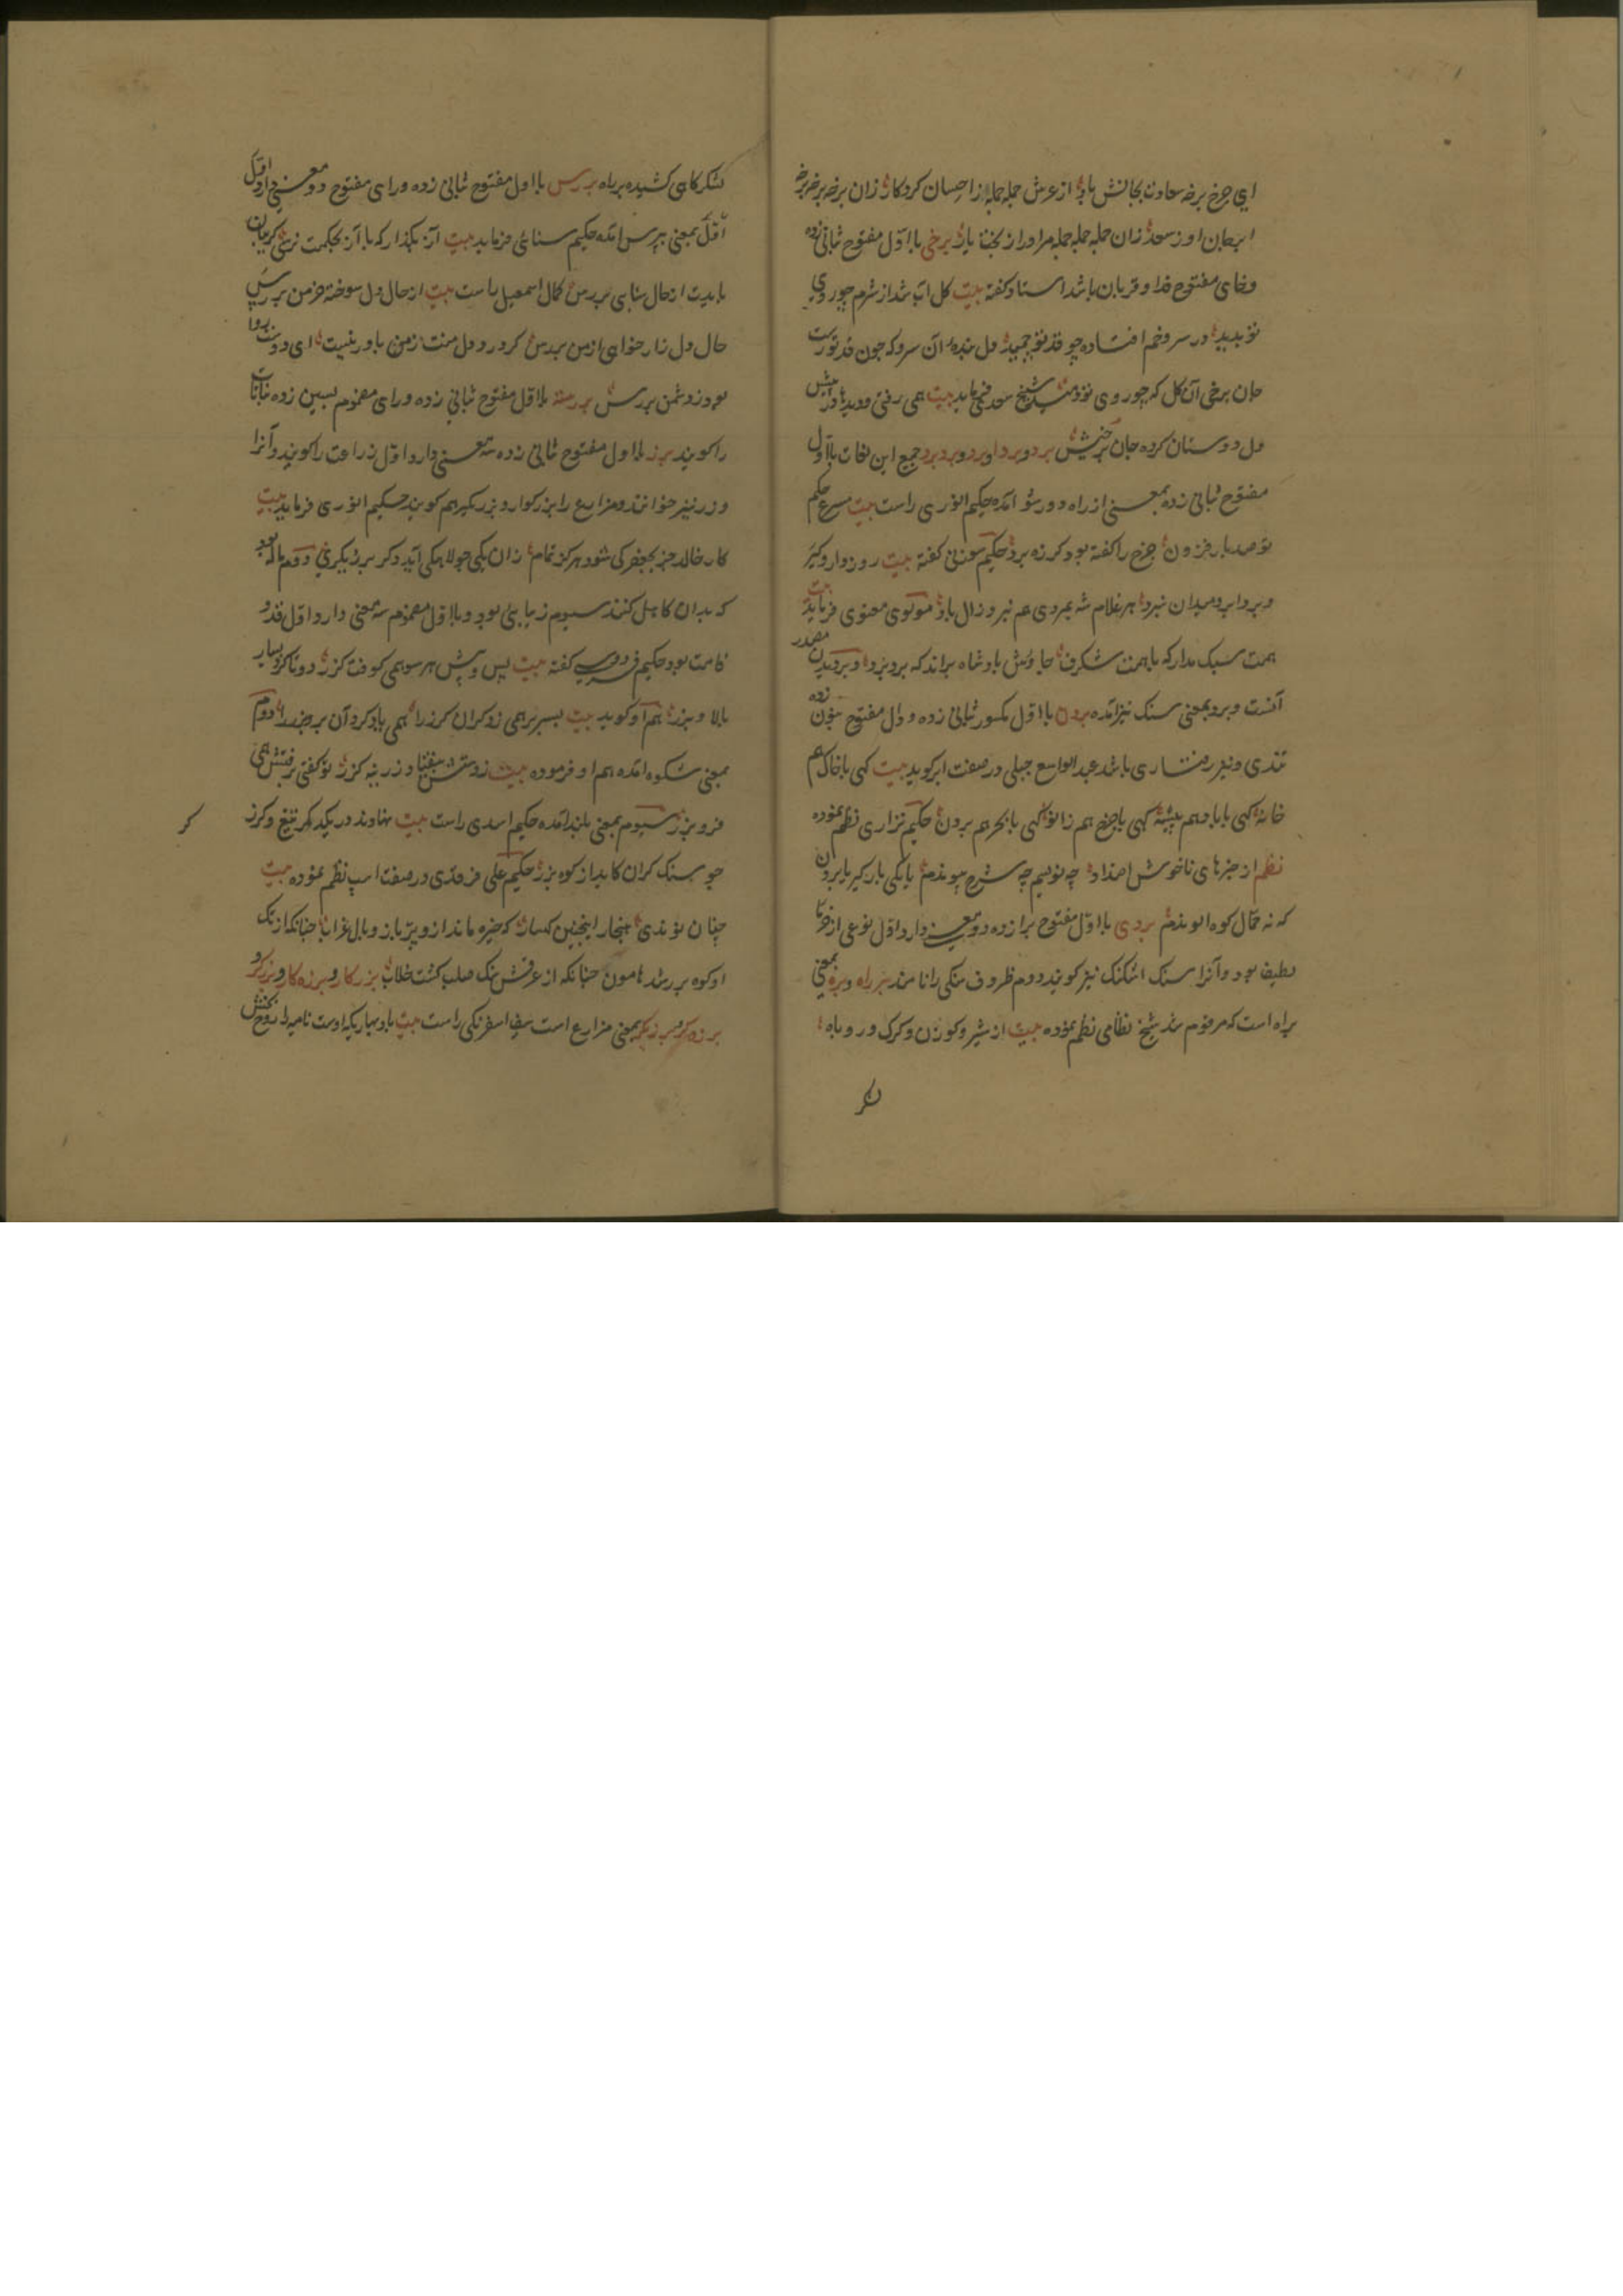 ای چرخ برخه سعادت بجانش باد از عرش جمله جمله ز احسان کردکار زان برخه برخه برخه
بجان او ز سعد زان جمله جمله جمله مر او را ز بخت یار برخی با اول مفتوح ثانی زده
وخای مفتوح فدا و قربان باشد استاد کفته بیت کل آب شد از شرم چو روی
تو بدید در سرو خم افتاده چو قد تو چمید دل بنده آن سرو که چون قد تو رست
جان برخی آن کل که چو روی تو دمید شیخ سعدی فرماید بیت همی رفتی و دیدها در پیش
دل دوستان کرده جان برخیش برد و بردا و برد و بردبرد جمیع این لغات با اول
مفتوح ثانی زده بمعنی از راه دور شو آمده حکیم انوری راست بیت مسرع حکم
تو صد بار فزون چرخ را کفته بود کرزه برد حکیم سوزنی کفته بیت روز دار و کیر
وبردابرد میدان نبرد هر غلام شه بمردی عم نبر و زال باد مولوی معنوی فرماید بیت
همت سبک مدار که با همت شکرف چاوش بادشاه براند که بردبرد و بردیدن مصدر
آنست و برد بمعنی سنک نیز آمده بردن با اول مکسور ثانی زده و دال مفتوح بنون زده
تندی و تیز رفتاری باشد عبدالواسع جبلی در صفت ابر کوید بیت کهی با خاک هم
خانه کهی با باد هم پیشه کهی با چرخ هم زانو کهی با بحر هم بردن حکیم نزاری نظم نموده
نظم از خبرهای ناخوش اضداد چه نویسم چه شرح پیوندم با یکی بارکیر یا بردن
که نه حمال کوه الوندم بردی با اول مفتوح برا زده دو معنی دارد اول نوعی از خرما
لطیف بود و آنرا سنک اشکنک نیز کویند دوم ظروف سنکی را نامند بر راه و بره بمعنی
براه است که مرقوم شد شیخ نظامی نظم نموده بیت از شیر و کوزن و کرک و روباه
لشکرکاهی کشیده بر راه بررس با اول مفتوح ثانی زده ورای مفتوح دو معنی دارد اول
اول بمعنی بپرس آمده حکیم سنائی فرماید بیت آز بکذار که با آز بحکمت نرسی کر بیان
بایدت از حال سنایی بررس کمال اسمعیل راست بیت از حال دل سوخته خرمن بررس
حال دل زار خواهی از من بررس کر درد دل منت ز من باور نیست ای دوست بروا
بروز دشمن بررس بررسته با اول مفتوح ثانی زده ورای مضموم بسین زده نباتات
را کویند برز با اول مفتوح ثانی زده سه معنی دارد اول زراعت را کویند و آنرا
ورز نیز خوانند و مزارع را برزکار و برزیکر هم کویند حکیم انوری فرماید بیت
کار خالد جز بجعفر کی شود هرکز تمام زان یکی جولاهکی آید دکر برزیکری دوم ماله بود
که بدان کاهکل کنند سیوم زیبایی بود و با اول مضموم سه معنی دارد اول قد و
قامت بود حکیم فردوسی کفته بیت پس و پیش هر سو همی کوفت کرز دو تا کرد بسیار
بالا و برز هم او کوید بیت بسر بر همی زد کران کرز را همی یاد کرد آن بر و برز را دوم
بمعنی شکوه آمده هم او فرموده بیت زدش بیفتاد زرینه کرز تو کفتی برفتش همی
فر و برز سیوم بمعنی بلند آمده حکیم اسدی راست بیت نهادند در یکدکر تیغ و کرز
چو سنک کران کاید از کوه برز حکیم علی فرقدی در صفت اسب نظم نموده بیت
چنان نوندی هنجار اینچنین کهسار که خیره ماند ازو پر باز و بال غراب چنانکه از تک
او کوه برز شد هامون چنانکه از عرقش سنک صلب کشت خلاب برزکار و برزه کار و برزکر و
برزه کر و برزیکر بمعنی مزارع است سیف اسفرنکی راست بیت باد بهار یکه اوست نامیه را روح بخش